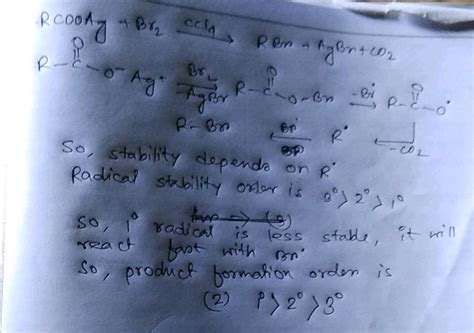 RCOOAg + Br2 CCl4→ RBr + AgBr + CO2
R-C(=O)-O⁻ Ag⁺ Br2→ AgBr R-C(=O)-O-Br -Br•→ R-C(=O)-O•
R-Br ←Br• R• ←-CO2
So, stability depends on R•
Radical stability order is 3°>2°>1°
So, 1° radical is less stable, it will
react fast with Br•
So, product formation order is
(2) 1°>2°>3°